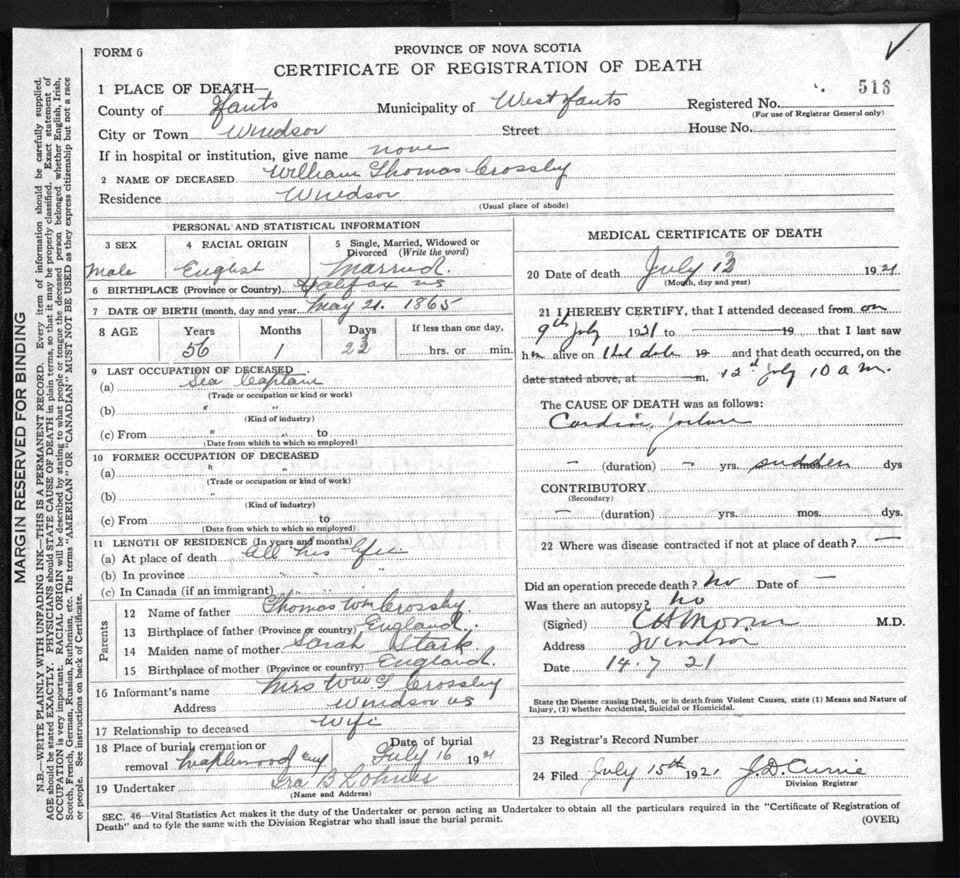 FORM 6
PROVINCE OF NOVA SCOTIA
CERTIFICATE OF REGISTRATION OF DEATH
518
1 PLACE OF DEATH—
County of Hants Municipality of West Hants Registered No.
(For use of Registrar General only)
City or Town Windsor Street House No.
If in hospital or institution, give name none
2 NAME OF DECEASED William Thomas Crossby
Residence Windsor
(Usual place of abode)
PERSONAL AND STATISTICAL INFORMATION
3 SEX 4 RACIAL ORIGIN 5 Single, Married, Widowed or Divorced (Write the word)
Male English Married.
6 BIRTHPLACE (Province or Country) Halifax NS
7 DATE OF BIRTH (month, day and year) May 21. 1865
8 AGE Years Months Days If less than one day,
56 1 22 hrs. or min.
9 LAST OCCUPATION OF DECEASED
(a) Sea Captain
(Trade or occupation or kind or work)
(b) " "
(Kind of industry)
(c) From " " to
(Date from which to which so employed)
10 FORMER OCCUPATION OF DECEASED
(a) " "
(Trade or occupation or kind of work)
(b) "
(Kind of industry)
(c) From to
(Date from which to which so employed)
11 LENGTH OF RESIDENCE (In years and months)
(a) At place of death All his life
(b) In province " "
(c) In Canada (if an immigrant) " "
Parents
12 Name of father Thomas Wm Crossby.
13 Birthplace of father (Province or country) England.
14 Maiden name of mother Sarah Stark
15 Birthplace of mother (Province or country) England.
16 Informant's name Mrs Wm T Crossby
Address Windsor NS
17 Relationship to deceased Wife
18 Place of burial, cremation or removal Maplewood Cem Date of burial July 16 1921
19 Undertaker Ira B Lohnes
(Name and Address)
MEDICAL CERTIFICATE OF DEATH
20 Date of death July 12 1921
(Month, day and year)
21 I HEREBY CERTIFY, that I attended deceased from on
9th July 1921 to 19 that I last saw
him alive on that date 19 and that death occurred, on the
date stated above, at m. 12th July 10 a m.
The CAUSE OF DEATH was as follows:
Cardiac failure
— (duration) — yrs. mos. sudden dys
CONTRIBUTORY
(Secondary)
— (duration) yrs. mos. dys.
22 Where was disease contracted if not at place of death? —
Did an operation precede death? No Date of —
Was there an autopsy? No
(Signed) M.D.
Address Windsor
Date 14. 7 21
State the Disease causing Death, or in death from Violent Causes, state (1) Means and Nature of
Injury, (2) whether Accidental, Suicidal or Homicidal.
23 Registrar's Record Number
24 Filed July 15th 1921 J.D. Currie
Division Registrar
SEC. 46—Vital Statistics Act makes it the duty of the Undertaker or person acting as Undertaker to obtain all the particulars required in the "Certificate of Registration of
Death" and to fyle the same with the Division Registrar who shall issue the burial permit. (OVER)
MARGIN RESERVED FOR BINDING
N.B.—WRITE PLAINLY WITH UNFADING INK—THIS IS A PERMANENT RECORD. Every item of information should be carefully supplied.
AGE should be stated EXACTLY. PHYSICIANS should STATE CAUSE OF DEATH in plain terms, so that it may be properly classified. Exact statement of
OCCUPATION is very important. RACIAL ORIGIN will be described by stating to what people or tongue the deceased person belonged whether English, Irish,
Scotch, French, German, Russian, Ruthenian, etc. The terms "AMERICAN" OR "CANADIAN" MUST NOT BE USED as they express citizenship but not a race
or people. See instructions on back of Certificate.